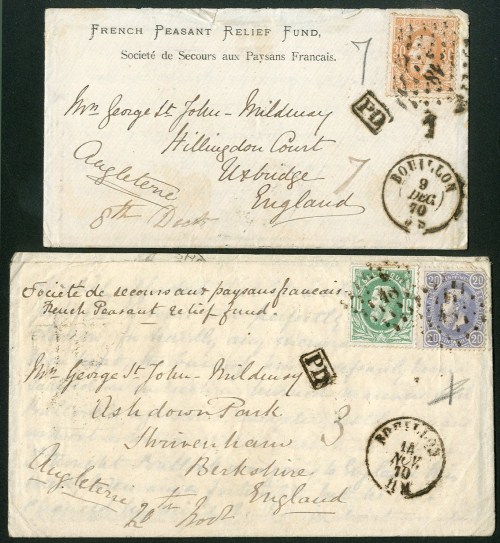 FRENCH PEASANT RELIEF FUND,
Societé de Secours aux Paysans Francais.
7
PD
Mrs George St John-Mildmay
Hillingdon Court
Uxbridge
England
Angleterre
7
BOUILLON
9
DEC
70
8th Dec
Société de secours aux paysans francais
French Peasant relief fund.
20 20
20 20
PD
Mrs George St John-Mildmay
Ashdown Park
3
Shrivenham
Berkshire
England
Angleterre
BOUILLON
14
NOV
70